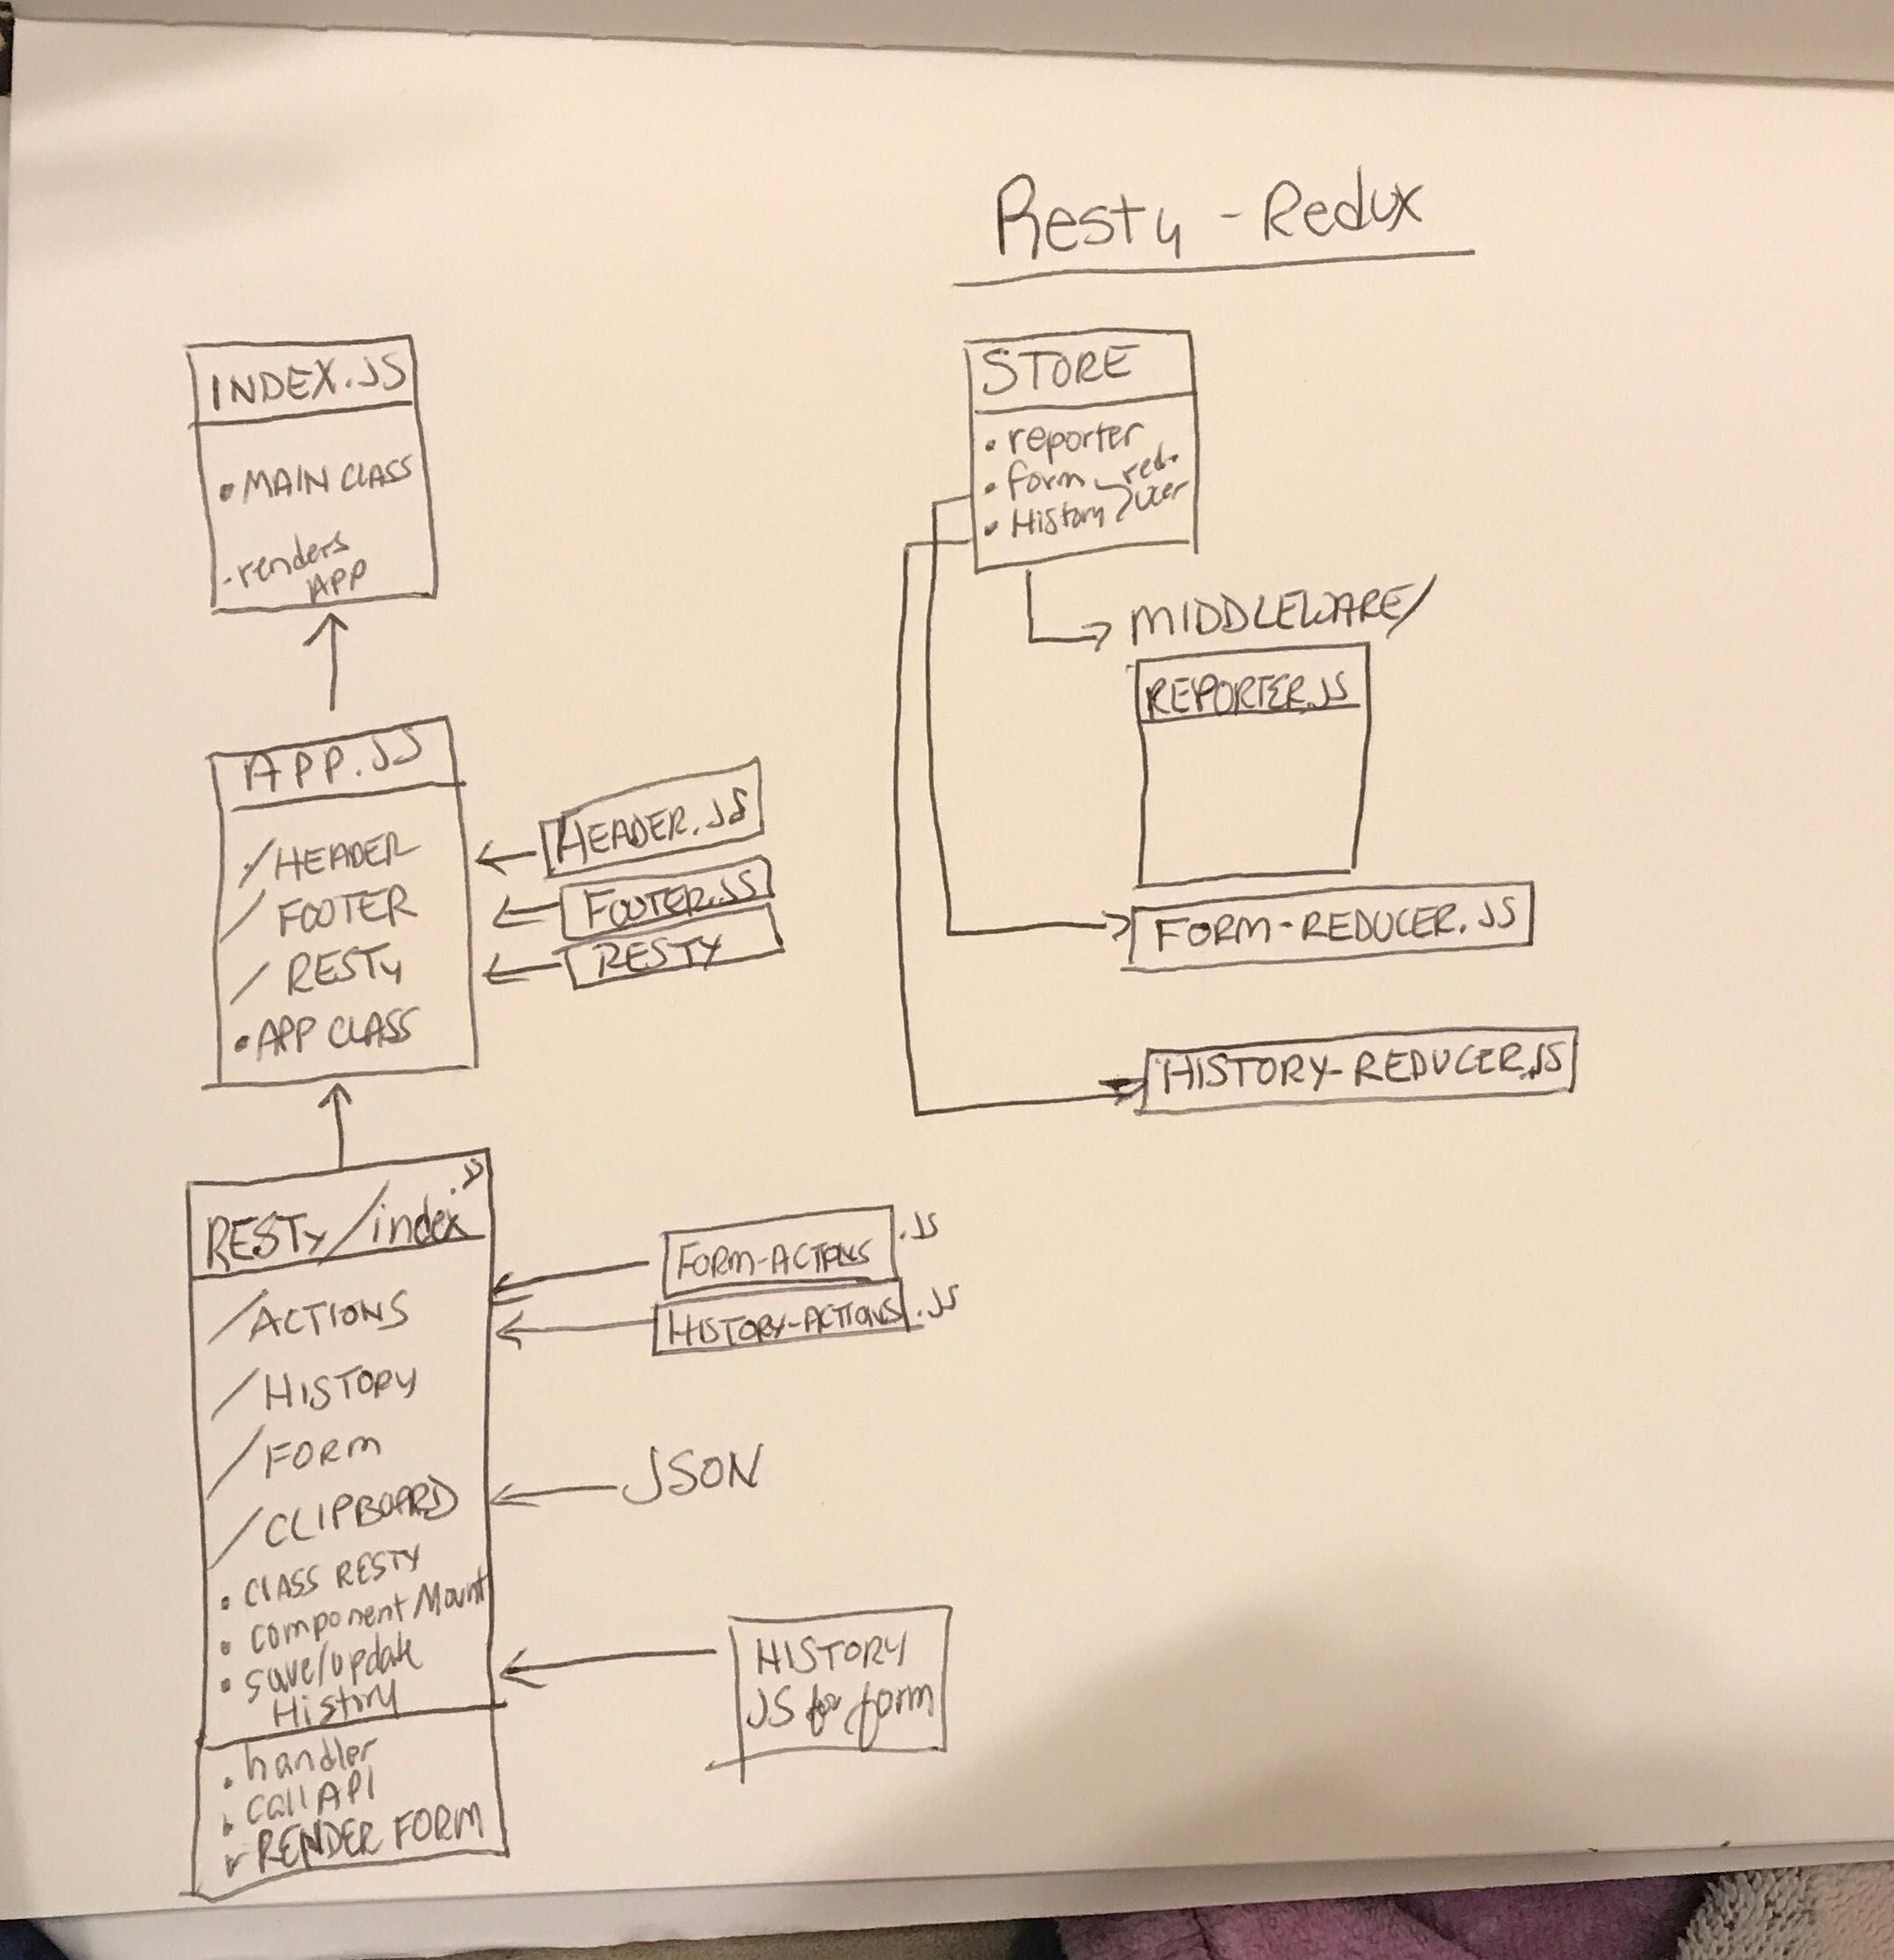 Resty - Redux
INDEX.JS
• MAIN CLASS
- renders
APP
APP.JS
/ HEADER
/ FOOTER
/ RESTy
• APP CLASS
HEADER.JS
FOOTER.JS
RESTY
RESTy/index.js
/ACTIONS
/HISTORY
/FORM
/CLIPBOARD
• CLASS RESTY
• component Mount
• save/update
History
• handler
• call API
• RENDER FORM
FORM-ACTIONS.JS
HISTORY-ACTIONS.JS
JSON
HISTORY
JS for form
STORE
• reporter
• form
• History
red-
ucer
MIDDLEWARE/
REPORTER.JS
FORM-REDUCER.JS
HISTORY-REDUCER.JS